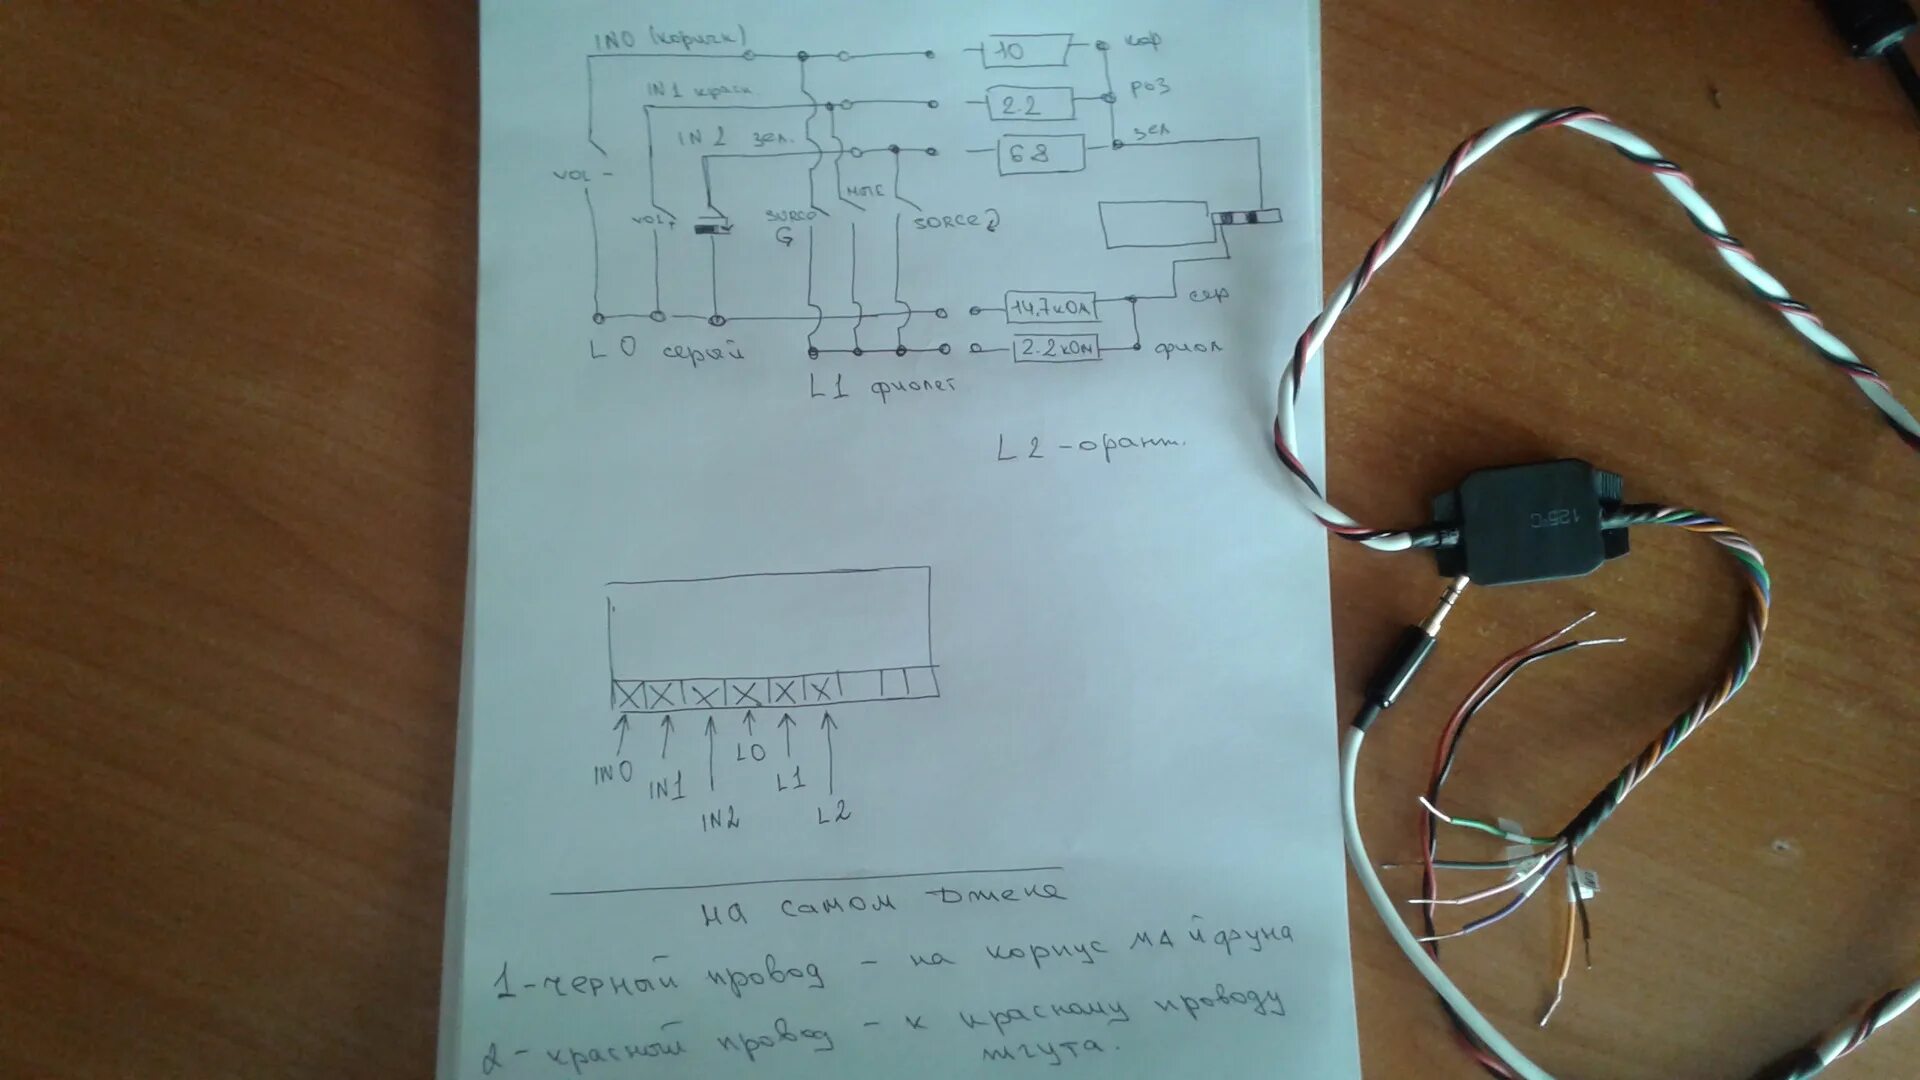 IN0 (коричн)
10
кор
IN1 красн.
2.2
роз
IN2 зел.
68
зел
VOL -
VOL+
MUTE
SORCE2
G
14,7кОм
сер
L0 серый
2.2кОм
фиол
L1 фиолет
L2 - оранж.
IN0
IN1
IN2
L0
L1
L2
на самом Джеке
1 - черный провод - на корпус майфуна
2 - красный провод - к красному проводу
жгута.
125°C